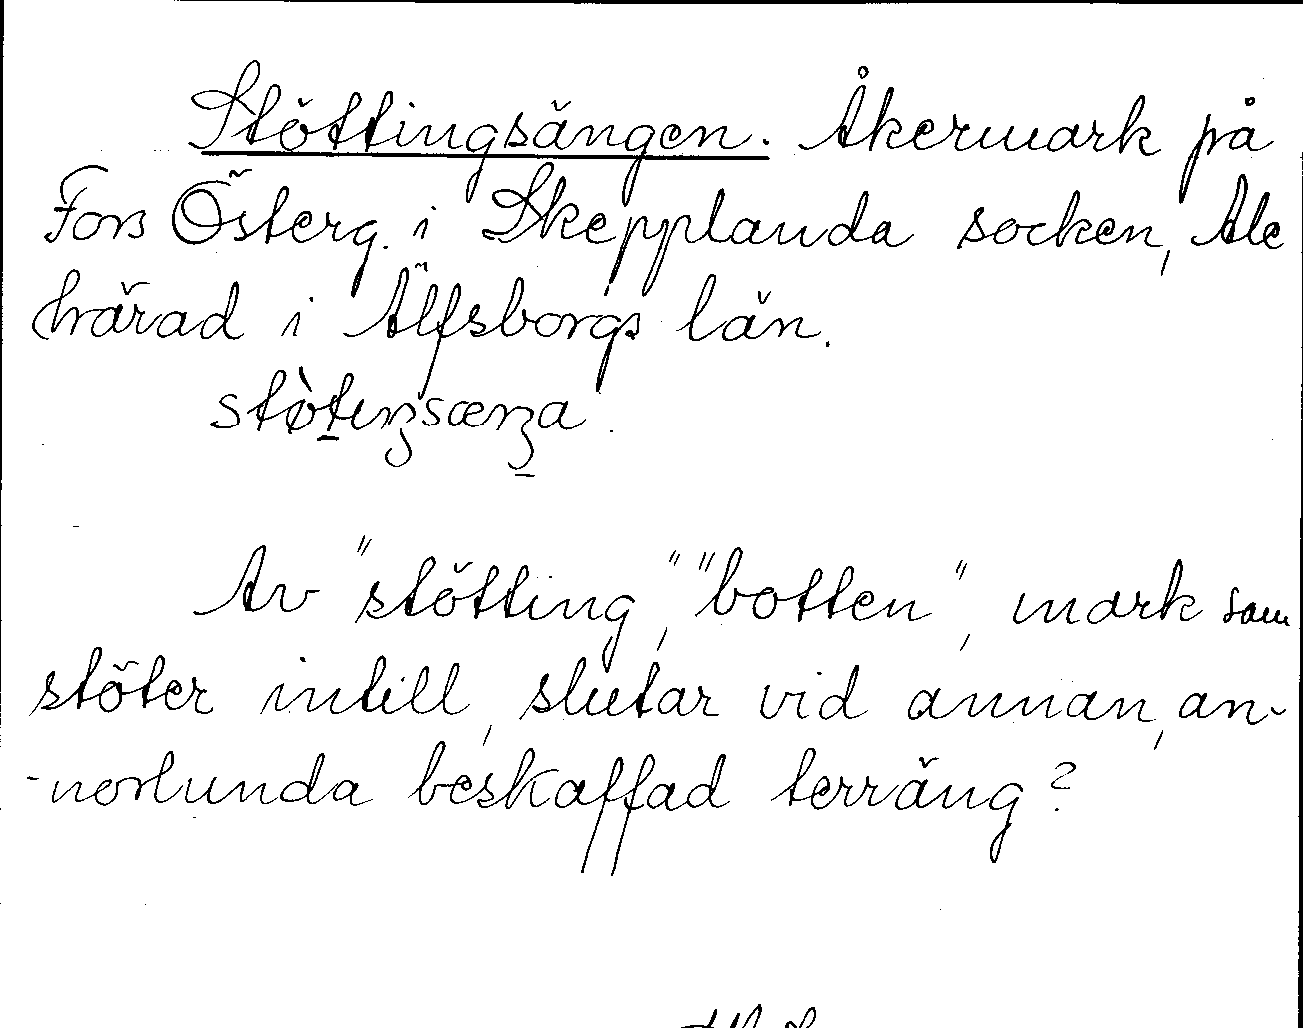 Stöttingsängen. Åkermark på
Fors Österg. i Skepplanda socken, Ale
härad i Älfsborgs län.
stø̀tıŋsæŋa.
Av "stötting," "botten", mark som
stöter intill, slutar vid annan, an-
-norlunda beskaffad terräng?